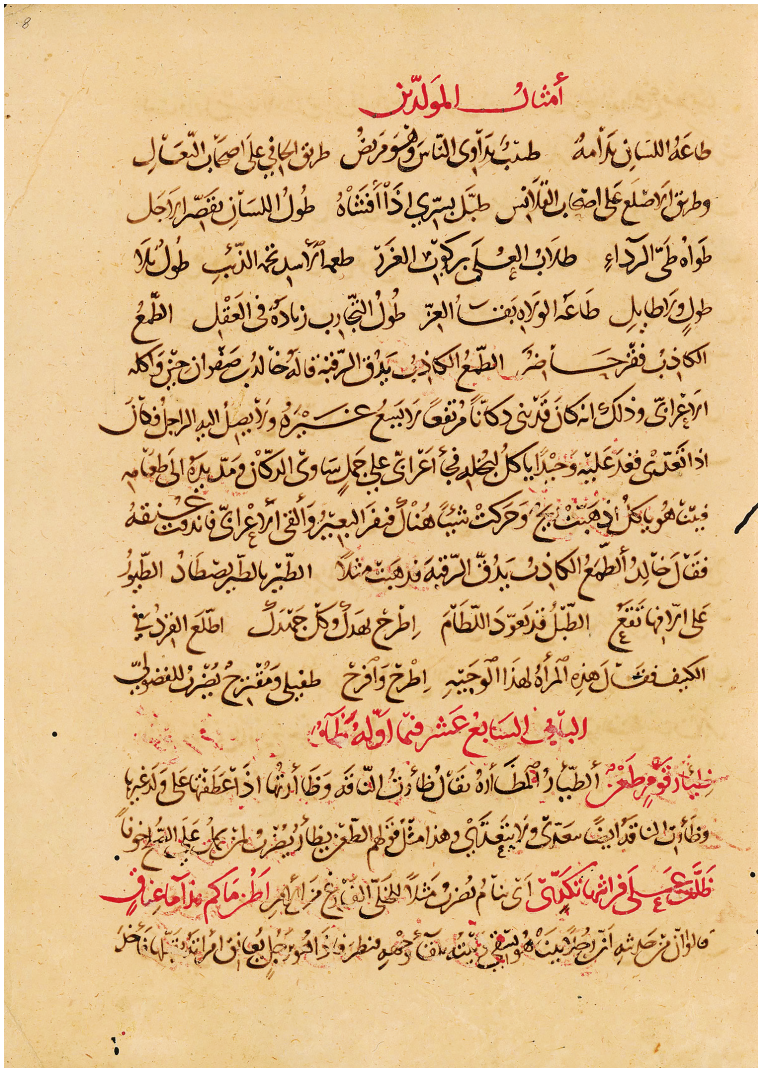 أمثال المولدين
طاعة اللسان ندامة طبيب يداوي الناس وهو مريض طريق الحافي على اصحاب النعال
وطريق الاصلع على اصحاب القلانس طبل بسري اذا أفشاه طول اللسان يقصر الاجل
طواه طي الرداء طلاب العلى بركوب الغرر طعمة الأسد تخمة الذئب طول بلا
طول ولا طايل طاعة الولاة بقاء العز طول التجارب زيادة في العقل الطمع
الكاذب فقر حاضر الطمع الكاذب يدق الرقبة قاله خالد بن صفوان حين واكله
الاعرابي وذلك انه كان قد بنى دكانا مرتفعا لا يسع غيره ولا يصل اليه الراجل فكان
اذا تغدى قعد عليه وحيدا ياكل لبخله فجاء اعرابي على جمل ساوى الدكان ومد يده الى طعامه
فبينا هو ياكل اذ هبت ريح وحركت شيئا هناك فنفر البعير وألقى الأعرابي فاندقت عنقه
فقال خالد ألطمع الكاذب يدق الرقبة فذهبت مثلا الطير بالطير يصطاد الطيور
على الافها تقع الطبل قد تعود اللطام اطرح نهدك وكل جهدك اطلع القرد في
الكنيف فقال هذه المرأة لهذا الوجيه اطرح وافرح طفيلي ومقترح يضرب للفضولي
الباب السابع عشر فيما اوله ظاء
ظئار قوم طعن ألظئار المظأرة يقال ظأرت الناقة وظأرتها اذا عطفتها على ولد غيرها
وظأرت الناقة ايضا يتعدى ولا يتعدى وهذا مثل قولهم الطعن يظأر يضرب لمن يحمل على الصلح خوفا
ظلت على فراشها تكرى أي تنام يضرب مثلا للخلي الفارغ من الامر اظن ماءكم هذا ماء عناق
قالوا من حديثه ان رجلا بينا هو يستقي وبيته تلقاء وجهه فنظر فاذا هو برجل يعانق امراته يقبلها فاخذ